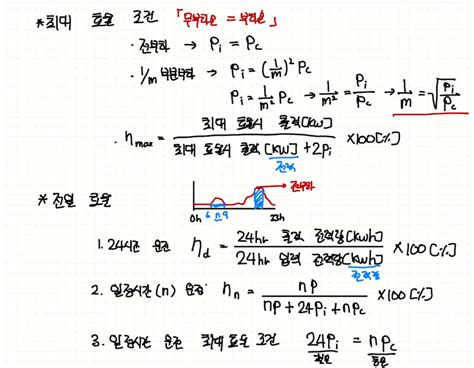 *최대 효율 조건 「무부하손 = 부하손」
· 전부하 → Pi = Pc
· 1/m 부분부하 → Pi = (1/m)² Pc
Pi = 1/m² Pc → 1/m² = Pi/Pc → 1/m = √(Pi/Pc)
· ηmax = 최대 효율시 출력[kW] / 최대 효율시 출력[kW] + 2Pi ×100[%]
전력
* 전일 효율
전부하
0h 6 n 9 23h
1. 24시간 운전 ηd = 24hr 출력 전력량[kWh] / 24hr 입력 전력량[kWh] ×100[%]
전력량
2. 일정시간(n) 운전 ηn = nP / nP + 24Pi + nPc ×100[%]
3. 일정시간 운전 최대 효율 조건 24Pi = nPc
철손 동손